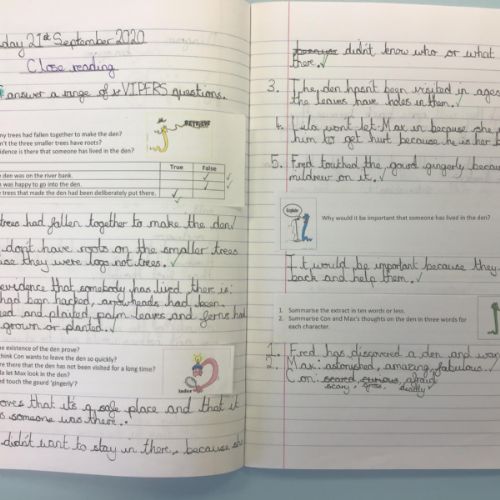 day 21st September 2020
Close reading
answer a range of VIPERS questions.
ny trees had fallen together to make the den?
n't the three smaller trees have roots?
idence is there that someone has lived in the den?
RETRIEVE
True False
den was on the river bank.
was happy to go into the den.
trees that made the den had been deliberately put there.
trees had fallen together to make the den
don't have roots on the smaller trees
se they were logs not trees.
evidence that somebody has lived there is:
had been hacked, arrowheads had been
ed and plaited, palm leaves and ferns had
grown or planted.
e existence of the den prove?
hink Con wants to leave the den so quickly?
re there that the den has not been visited for a long time?
la let Max look in the den?
ed touch the gourd 'gingerly'?
Infer
oves that it's a safe place and that it
s someone was there.
didn't want to stay in there, because she
didn't know who or what
there.
3. The den hasn't been visited in ages
the leaves have holes in them.
4. Lila wont let Max in because she
him to get hurt because he is her b
5. Fred touched the gourd gingerly becau
mildrew on it.
Explain
Why would it be important that someone has lived in the den?
It would be important because they
back and help them.
1. Summarise the extract in ten words or less.
2. Summarise Con and Max's thoughts on the den in three words for
each character.
1. Fred has discovered a den and wan
2. Max: astonished, amazing, fabulous.
Con: scared, curious, afraid
scary, deadly